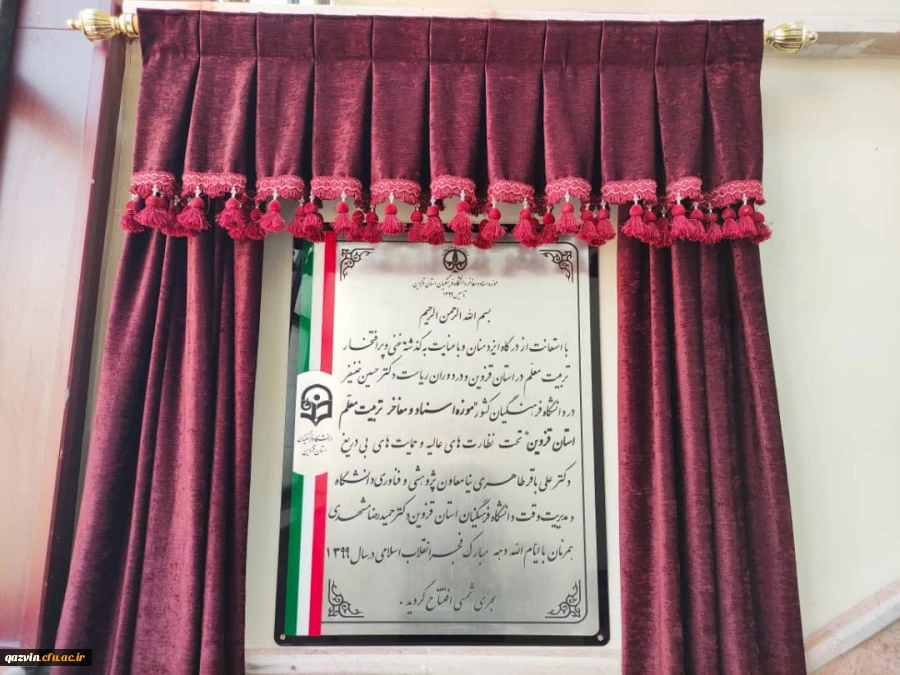 موزه اسناد و مفاخر دانشگاه فرهنگیان استان قزوین
تاسیس ۱۳۹۹
بسم الله الرحمن الرحیم
با استعانت از درگاه ایزد منان و با عنایت به گذشته غنی و پر افتخار
تربیت معلم در استان قزوین و در دوران ریاست دکتر حسین خنیفر
در دانشگاه فرهنگیان کشور "موزه اسناد و مفاخر تربیت معلم
استان قزوین" تحت نظارت های عالیه و حمایت های بی دریغ
دکتر علی باقر طاهری نیا معاون پژوهشی و فناوری دانشگاه
و مدیریت وقت دانشگاه فرهنگیان استان قزوین دکتر حمیدرضا مشهدی
همزمان با ایام الله دهه مبارک فجر انقلاب اسلامی در سال ۱۳۹۹
هجری شمسی افتتاح گردید.
دانشگاه فرهنگیان
استان قزوین
qazvin.cfu.ac.ir